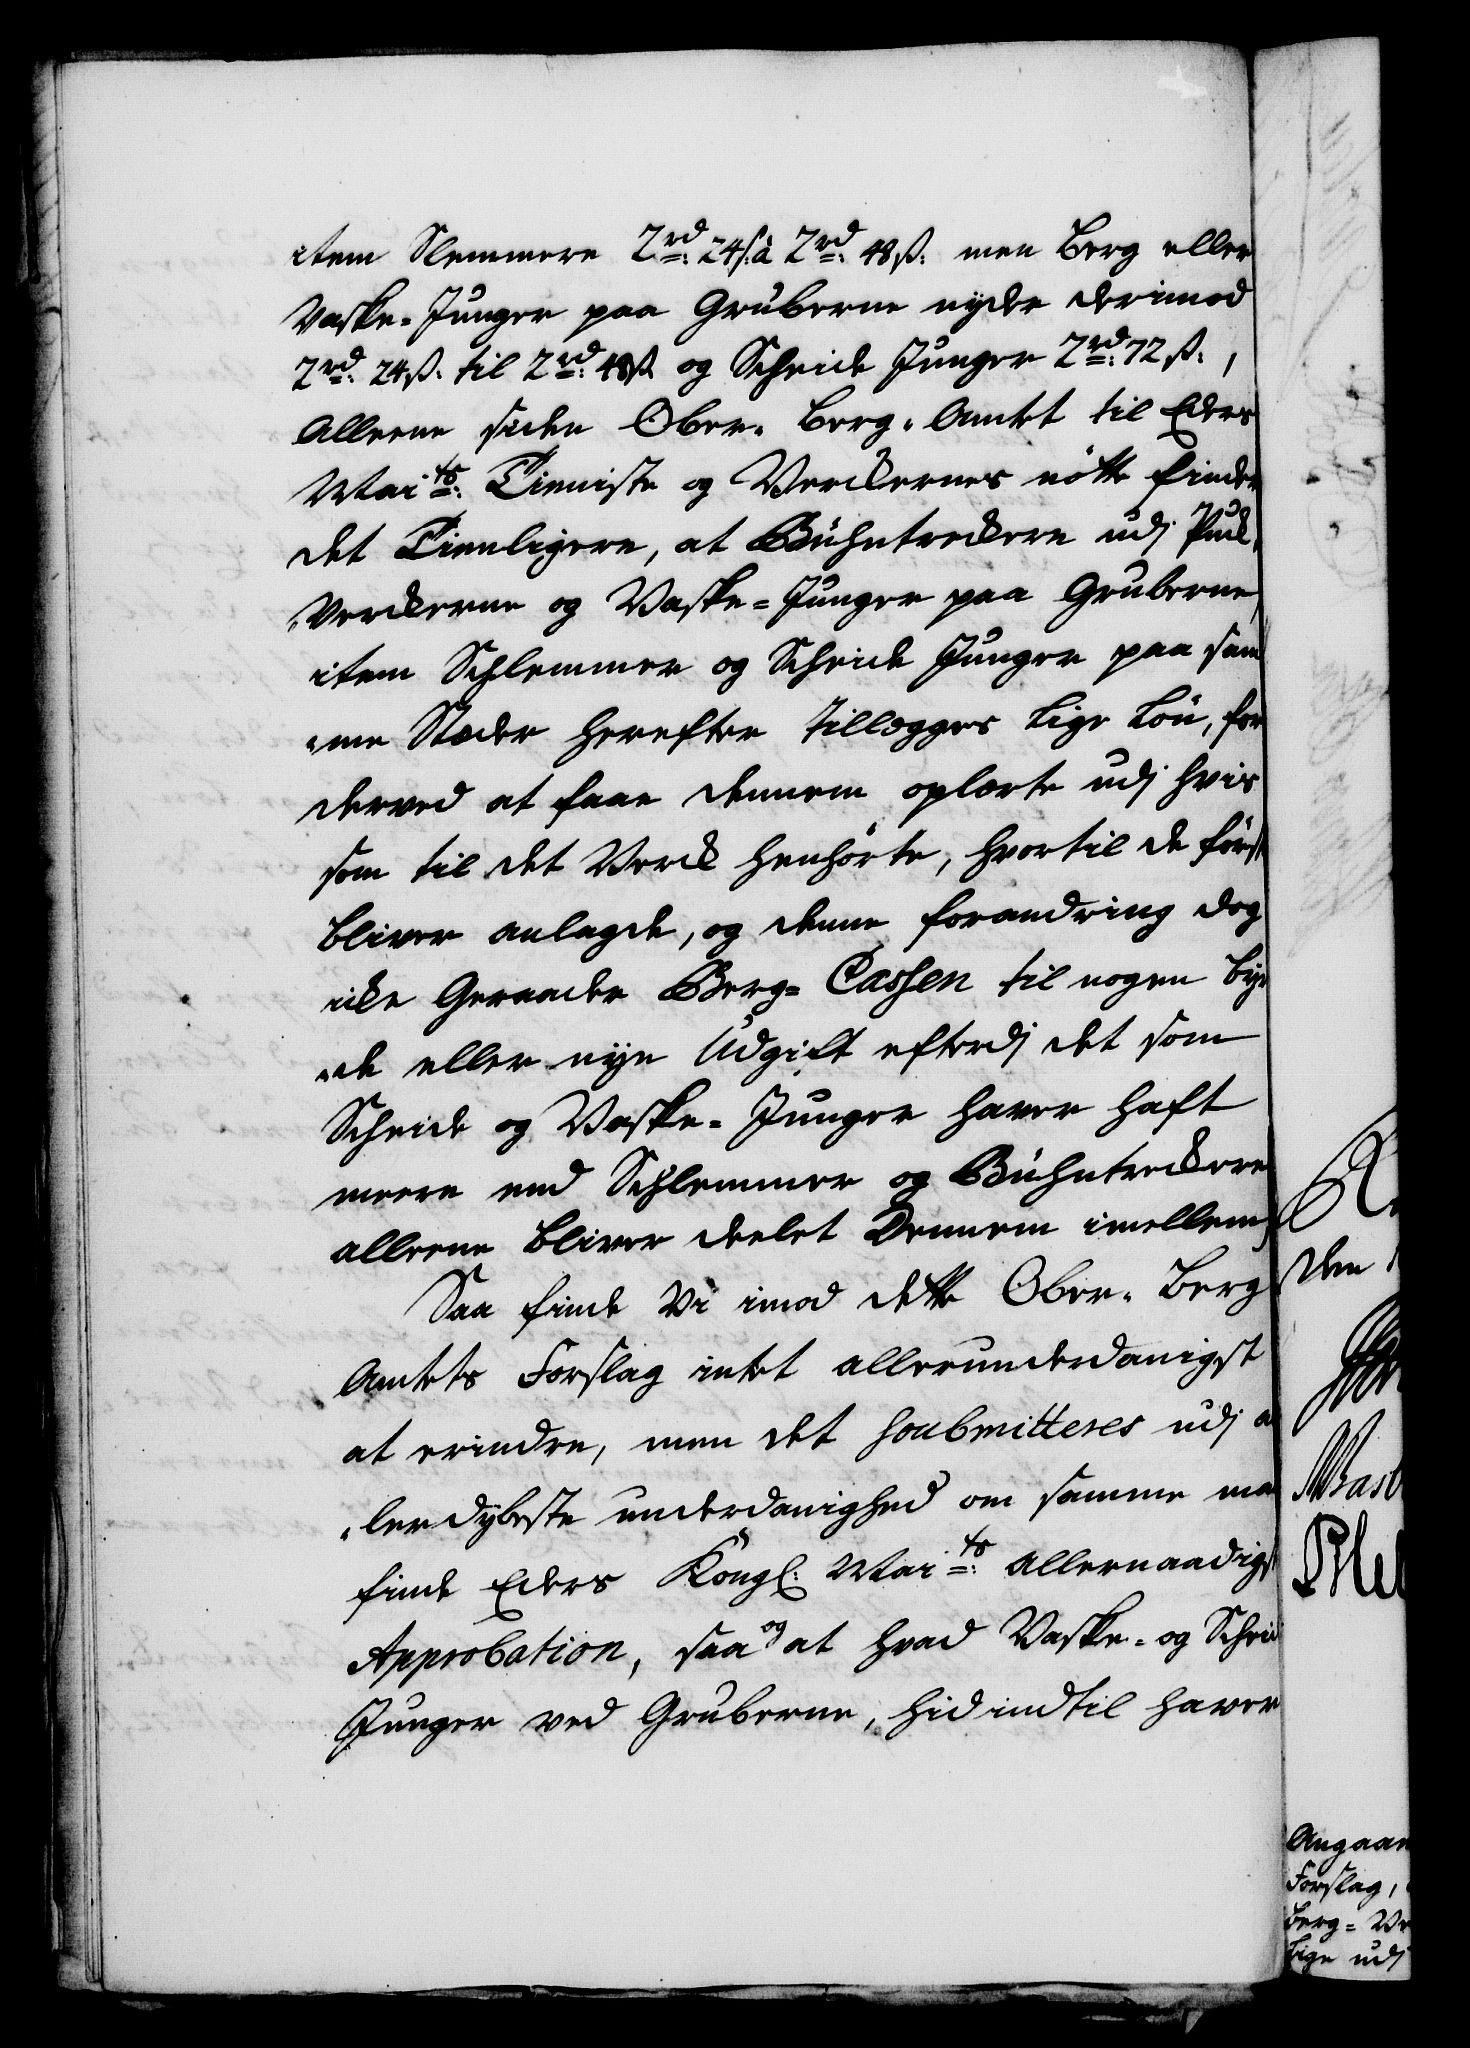 item Slemmere 2rd: 24ß: à 2rd: 48ß: men Berg eller
Vaske-Junger paa Gruberne nyder derimod
2rd: 24ß: til 2rd: 48ß og Scheide Junger 2rd: 72ß:,
Alleene siden Ober-Berg-Amtet til Eders
Maits: Tieniste og Verckernes nötte finder
det Tienligere, at Bühntreckere udj Puck,
„Verckerne og Vaske-Junger paa Gruberne,
item Schlemmer og Scheide Junger paa sam
„me Stæder herefter tillægges lige Lön, for
derved at faae dennem oplærte udj hvis
som til det Verck henhörte, hvortil de först
bliver anlagde, og denne forandring dog
icke Geraader Berg-Cassen til nogen byr
„de eller nye Udgift efterdj det som
Scheide og Vaske-Junger haver haft
meere end Schlemmer og Bühntreckere
alleene bliver deelet Dennem imellem,
Saa finde Vi imod dette Ober-Berg
Amtets Forslag intet allerunderdanigst
at erindre, men det soubmitteres udj a
„lerdybeste underdanighed om samme ma
finde Eders Kongl: Maits: allernaadigst
Approbation, saa og at hvad Vaske- og Scheid
Junger ved Gruberne, hidindtil haver
den
Angaaen
Forslag,
Berg-Ve
lige udj